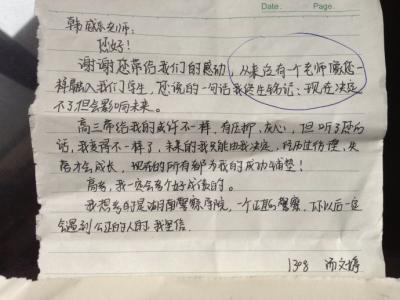 Date: Page.
韩威东老师:
您好!
谢谢您带给我们的感动,从来没有一个老师像您一
样融入我们学生,您说的一句话我终生铭记:现在决定
不了但会影响未来。
高三带给我的或许不一样,有压抑、灰心,但听了您的
话,我变得不一样了,未来的我只能由我决定,经历过彷徨、失
落才会成长,现在的所有都为我的成功铺垫!
高考,我一定会考个好成绩的。
我想考的是湖南警察学院,一个正能警察,不以后一定
会遇到公正的人的,我坚信。
1308 汤文婷